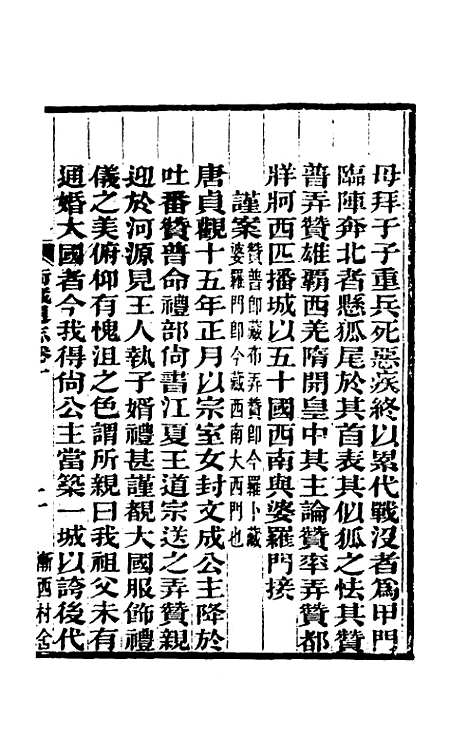 母拜子子重兵死惡疾終以累代戰沒者爲甲門
臨陣奔北者懸狐尾於其首表其似狐之怯其贊
普弄贊雄霸西羌隋開皇中其主論贊率弄贊都
牂牁西匹播城以五十國西南與婆羅門接
謹案贊普卽藏布弄贊卽今羅卜藏
婆羅門卽今藏西南大西門也
唐貞觀十五年正月以宗室女封文成公主降於
吐番贊普命禮部尙書江夏王道宗送之弄贊親
迎於河源見王人執子婿禮甚謹覩大國服飾禮
儀之美俯仰有愧沮之色謂所親曰我祖父未有
通婚大國者今我得尙公主當築一城以誇後代
衛藏通志卷一
漸西村舍